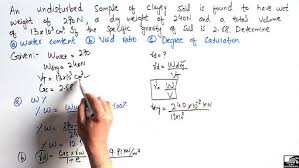 An undisturbed Sample of clayey Soil is found to have wet
weight of 290N, a dry weight of 240N and a total volume
of 13x10³cm³ if the specific gravity of soil is 2.68. Determine
ⓐ Water content ⓑ Void ratio ⓒ Degree of saturation
Given:- Wwet = 290
Wdry = 240N
VT = 13x10³ cm³
Gs = 2.68
ⓐ W%
% W =
x 100%
ⓑ
γd = ?
γd = Wdry
VT
γ = W
V
γdry = 240x10
13x10³